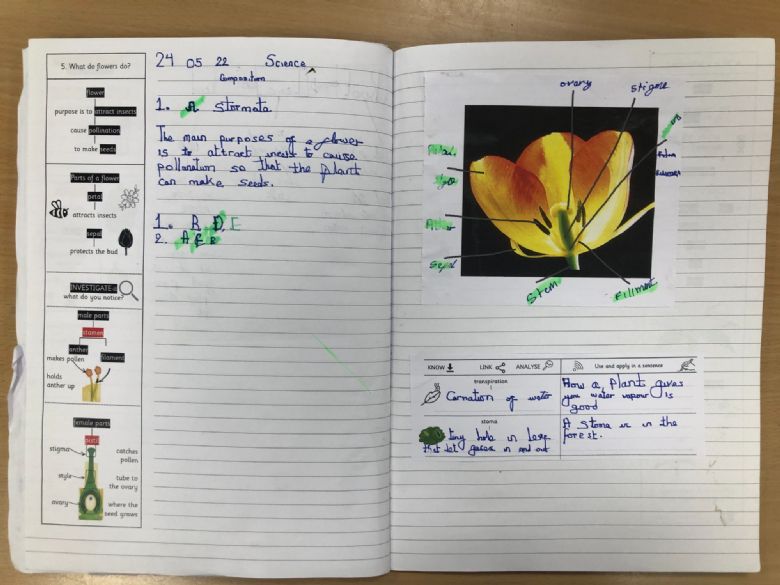 5. What do flowers do?
flower
purpose is to attract insects
cause pollination
to make seeds
Parts of a flower
petal
attracts insects
sepal
protects the bud
INVESTIGATE
what do you notice?
male parts
stamen
anther
makes pollen
filament
holds
anther up
female parts
pistil
stigma
catches
pollen
style
tube to
the ovary
ovary
where the
seed grows
24 05 22 Science
Composition
1. Stormata
The main purposes of a flower
is to attract insects to cause
pollanation so that the plant
can make seeds.
1. B D E
2. A C B
ovary
stigma
Sepal
Stem
Fillment
KNOW LINK ANALYSE
Use and apply in a sentence
transpiration
Carnation of water
How a plant gives
you water vapour is
good
stoma
tiny hole in
that let gases in and out
A stoma is in the
forest.